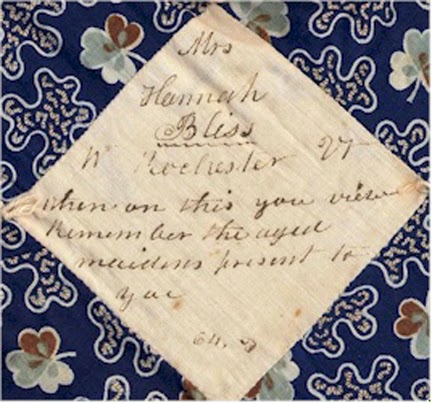 Mrs
Hannah
Bliss
W Rochester
when on this you view
Remember the aged
maidens present to
you